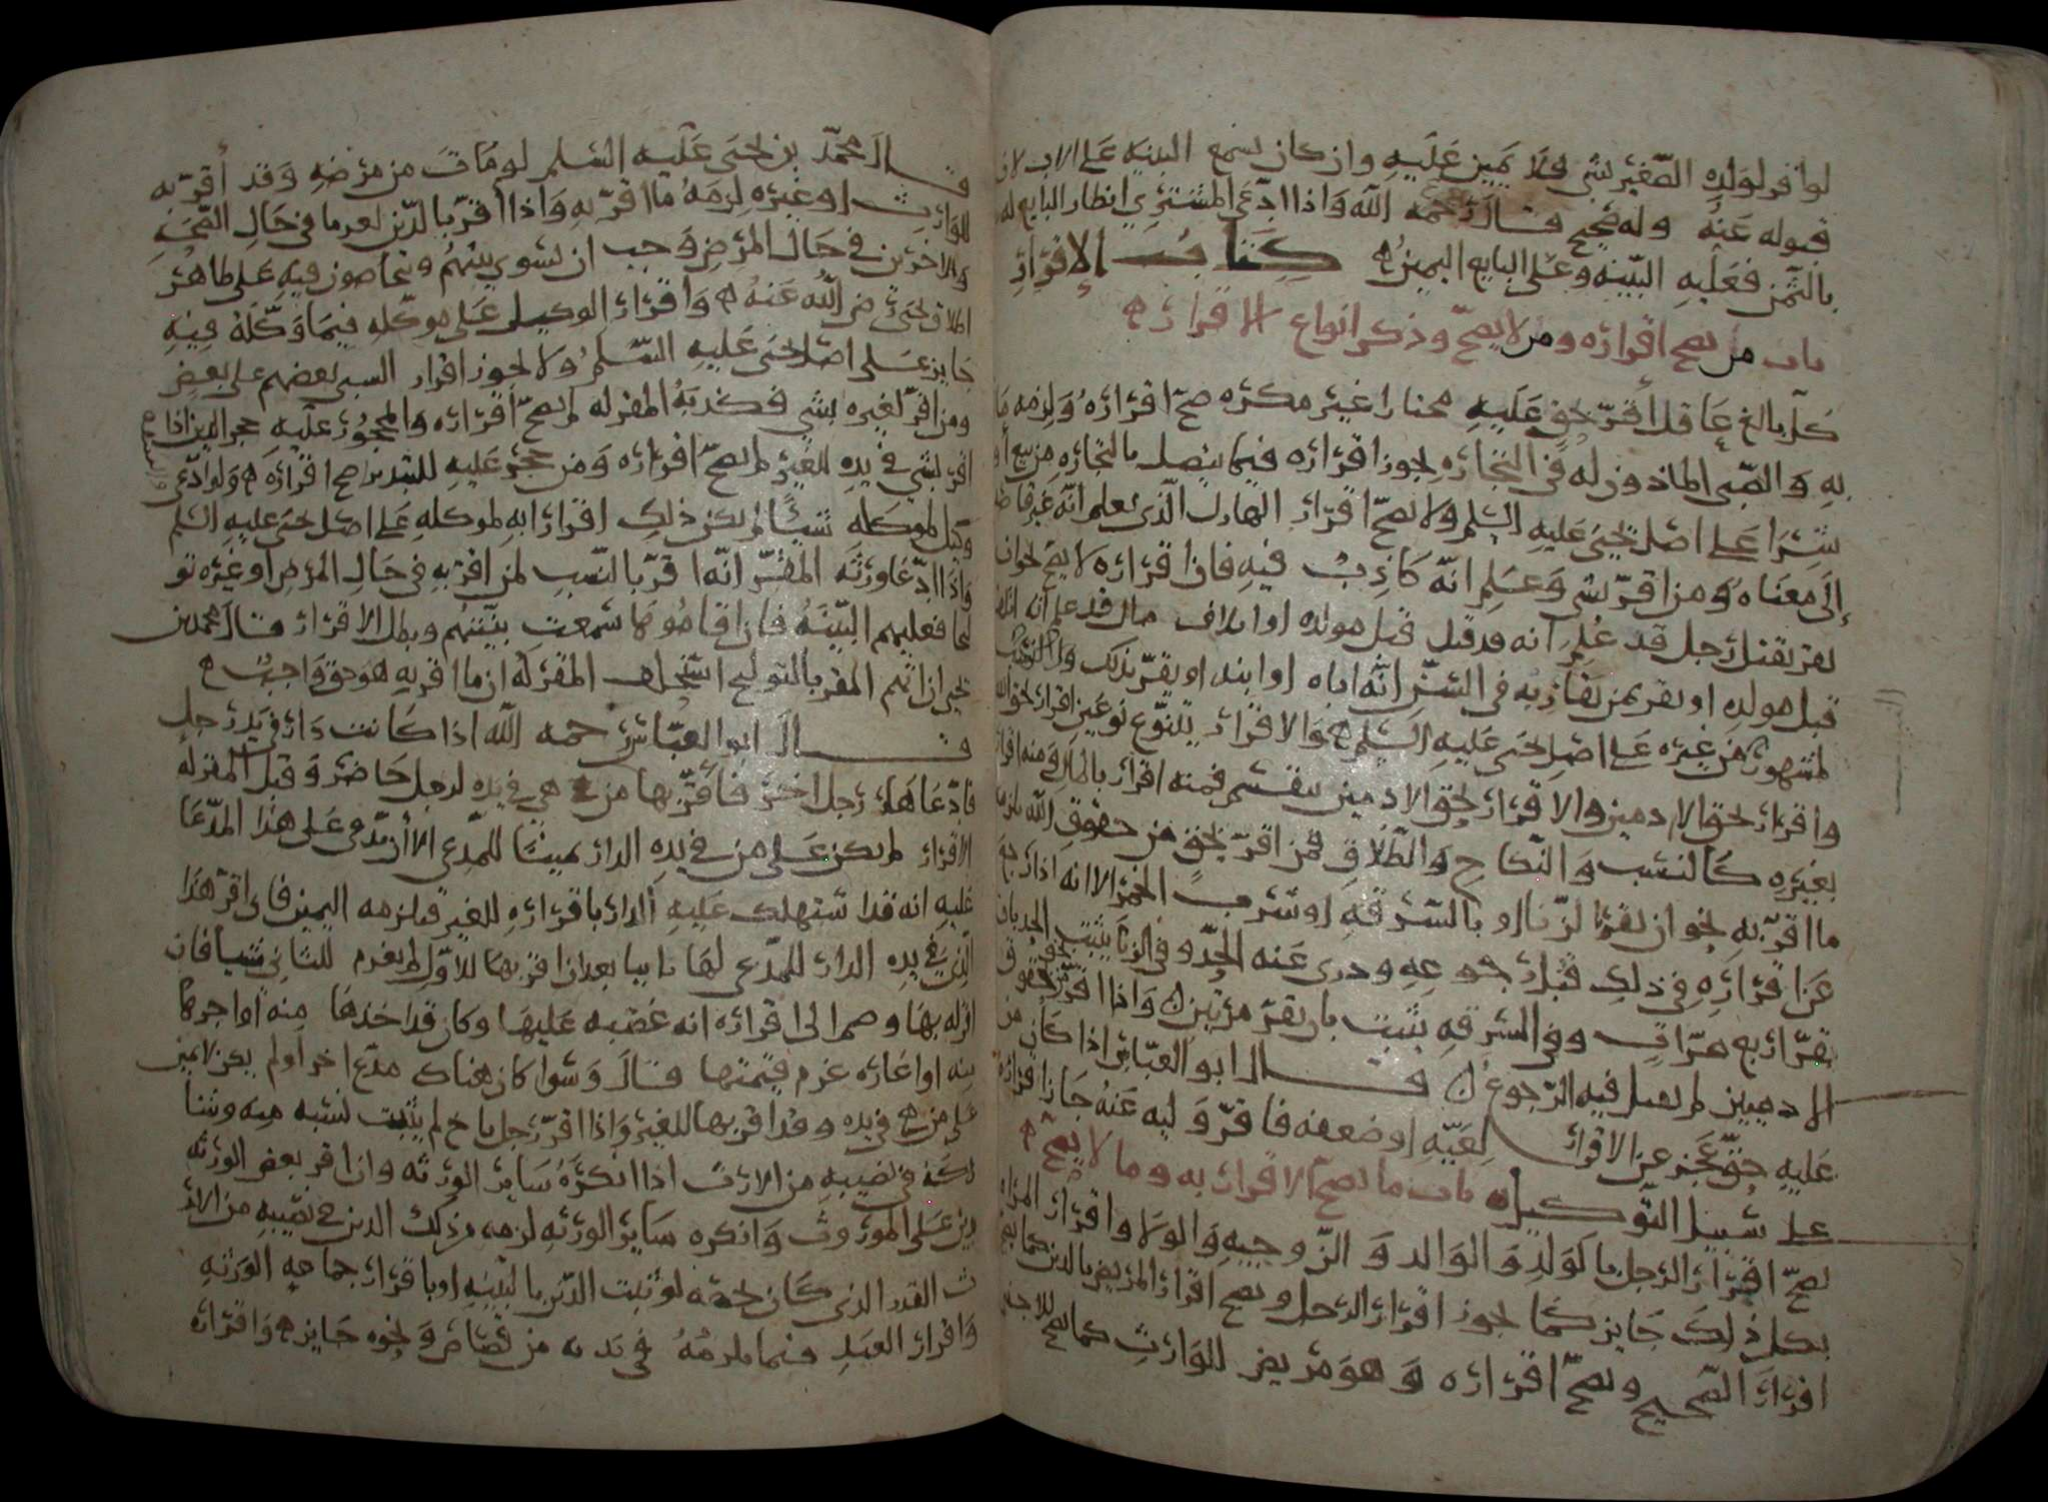 لو أقر لولده الصغير بشي فلا يمين عليه وان كان يسمع البينه على الاب لان
قبوله عنه وله صحيح قال رحمه الله واذا ادّعى المشتري انظار البايع له
بالثمن فعليه البيّنه وعلى البايع اليمين ه كتاب الاقرار
باب من يصح اقراره ومن لا يصحّ وذكر انواع الاقرار ه
كل بالغ عاقل أقرّ بحق عليه مختارا غير مكره صحّ اقراره ولزمه ما
به والصّبى الماذون له في التجاره يجوز اقراره فيما يتصل بالتجاره من بيع او
شرا على اصل يحيى عليه السّلم ولا يصحّ اقرار الهازل الّذى يعلم انّه غير قاصد
إلى معناه ومن اقرّ بشى وعلم انّه كاذب فيه فان اقراره لا يصح نحو ان
يقر بقتل رجل قد علم انه قد قتل قبل مولده او اتلاف مال قد علم انه اتلف
قبل مولده او يقر بمن يقاربه في السّن انّه اباه او ابنه او يقرّ بذلك
لمشهور من غيره على اصل يحيى عليه السّلم ه والاقرار يتنوّع نوعين اقرار بحق الله
واقرار بحق الادمين والاقرار بحق الادمين ينقسم فمنه اقرار بالمال ومنه اقرار
بغيره كالنسب والنّكاح والطّلاق فمن اقرّ بحق من حقوق الله لزمه
ما اقرّ به نحو ان يقر بالزّنا او بالسّرقه او شرب الخمر الا انه اذا رجع
عن اقراره في ذلك قبل رجوعه ودرى عنه الحدّ وفي الزنا يثبت الحد بان
يقرّ اربع مرّات وفي السرقه يثبت بان يقرّ مرّتين واذا اقرّ بحق من حقوق
الادميين لم يصل فيه الرّجوع قال ابو العبّاس اذا كان من
عليه حقّ عجز عن الاقرار لعيّه او ضعفه فاقرّ وليه عنه جاز اقراره
على سبيل التّوكيل ه باب ما يصح الاقرار به وما لا يصح ه
يصحّ اقرار الرّجل بالولد والوالد والزوجيه والولا واقرار المراه
بكل ذلك جايز كما يجوز اقرار الرّجل ويصح اقرار المريض بالدين كما يصح
اقرار الصّحيح ويصحّ اقراره وهو مريض للوارث كما يصح للاجنبي
قال محمّد بن يحيى عليه السّلم لو مات من مرضه وقد أقرّ به
للوارث او غيره لزمه ما اقرّ به واذا أقرّ بالدّين لغرما في حال الصّحه
ولاخرين في حال المرض وجب ان يسوى بينهم ويتحاصون فيه على ظاهر
اطلاق يحيى رضى اللّه عنه ه واقرار الوكيل على موكّله فيما وكّله فيه
جايز على اصل يحيى عليه السّلم ولا يجوز اقرار السبى بعضهم على بعض
ومن اقرّ لغيره بشي فكذبه المقر له لم يصحّ اقراره والمحجور عليه حجر الدين اذا
اقر بشى في يده للغير لم يصحّ اقراره ومن حجر عليه للتبذير صح اقراره ه ولو ادّعى
وكيل لموكله شيئًا لم يكن ذلك اقرارا به لموكله على اصل يحيى عليه السّلم
واذا ادّعا ورثه المقرّ انّه اقرّ بالنّسب لمن اقرّ به في حال المرض او غيره تو
لجا فعليهم البيّنه فان اقاموها سمعت بيّنتهم وبطل الاقرار قال محمّد بن
يحيى ان اتهم المقر بالتوليج استحلف المقر له ان ما اقر به هو حق واجب ه
قال ابو العبّاس رحمه اللّه اذا كانت دار في يد رجل
فادّعاها رجل اخر فأقرّ بها من هي في يده لرجل حاضر وقبل المقر له
الاقرار لم يكن على من في يده الدار يمينًا للمدعى الا أن يدّعى على هذا المدّعا
عليه انه قد استهلك عليه الدار باقراره للغير فيلزمه اليمين فان اقرّ هذا
الذى في يده الدار للمدّعى لها ثانيا بعد ان اقرّ بها للاوّل لم يغرم للثانى شيا فان
اقر له بها وضم الى اقراره انه غصبه عليها وكان قد اخذها منه او اجرها
منه او اعاره غرم قيمتها قال وسوا كان هناك مدّع اخر أو لم يكن لا يمين
على من هي في يده وقد اقر بها للغير واذا اقرّ رجل باخ لم يثبت نسبه منه وشا
ركه في نصيبه من الارث اذا انكره ساير الورثه وان اقر بعض الورثه
بدين على الموروث وانكره ساير الورثه لزمه من ذلك الدين في نصيبه من الار
ث القدر الذى كان يخصّه لو ثبت الدّين بالبيّنه او باقرار جماعه الورثه
واقرار العبد فيما يلزمه في بدنه من قصاص ونحوه جايز ه واقراره